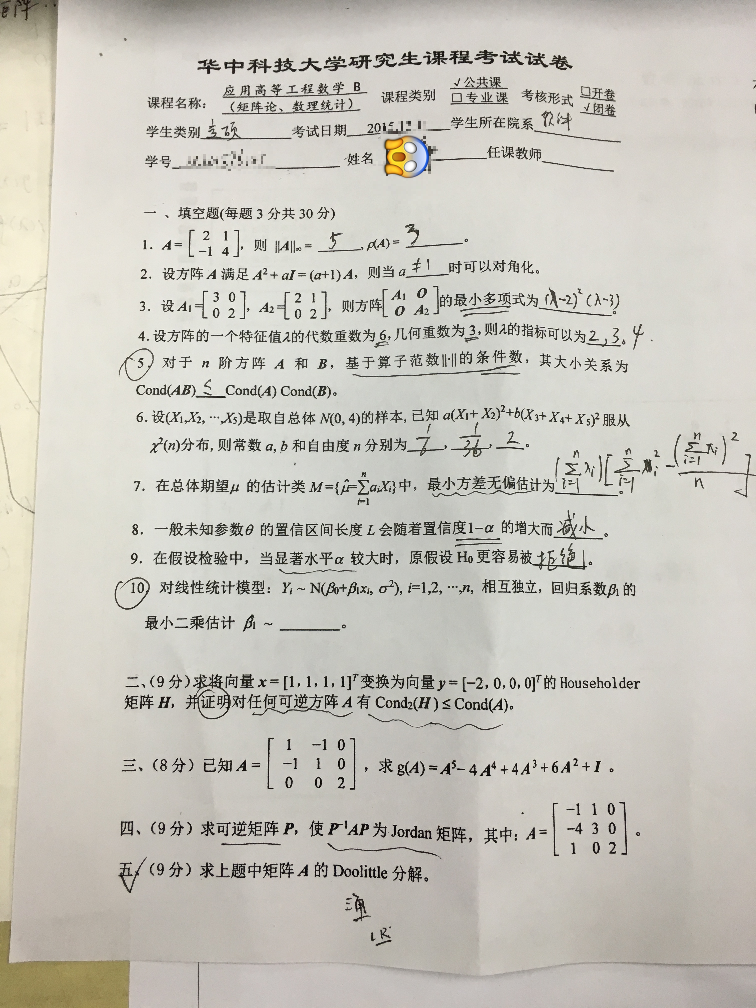 华中科技大学研究生课程考试试卷
课程名称: 应用高等工程数学 B (矩阵论、数理统计) 课程类别 √公共课 □专业课 考核形式 □开卷 √闭卷
学生类别 考试日期 2015.12 学生所在院系 软件
学号 姓名 任课教师
一、填空题(每题 3 分共 30 分)
1. A = [2 1; -1 4], 则 ‖A‖∞ = 5, ρ(A) = 3。
2. 设方阵 A 满足 A² + aI = (a+1)A, 则当 a ≠1 时可以对角化。
3. 设 A₁=[3 0; 0 2], A₂=[2 1; 0 2], 则方阵[A₁ O; O A₂]的最小多项式为 (λ-2)²(λ-3)
4. 设方阵的一个特征值λ的代数重数为 6, 几何重数为 3, 则λ的指标可以为 2,3,4.
5. 对于 n 阶方阵 A 和 B, 基于算子范数‖·‖的条件数, 其大小关系为
Cond(AB) ≤ Cond(A) Cond(B)。
6. 设(X₁,X₂, ···,X₅)是取自总体 N(0, 4)的样本, 已知 a(X₁+ X₂)²+b(X₃+ X₄+ X₅)² 服从
χ²(n)分布, 则常数 a, b 和自由度 n 分别为 , , 2。
7. 在总体期望μ 的估计类 M={μ̂=∑ᵢ₌₁ⁿaᵢXᵢ}中, 最小方差无偏估计为 。
8. 一般未知参数θ 的置信区间长度 L 会随着置信度1-α 的增大而 减小。
9. 在假设检验中, 当显著水平α 较大时, 原假设 H₀ 更容易被 拒绝。
10. 对线性统计模型: Yᵢ ~ N(β₀+β₁xᵢ, σ²), i=1,2, ···,n, 相互独立, 回归系数β₁ 的
最小二乘估计 β̂₁ ~ 。
二、(9 分)求将向量 x = [1, 1, 1, 1]ᵀ 变换为向量 y = [-2, 0, 0, 0]ᵀ 的 Householder
矩阵 H, 并证明对任何可逆方阵 A 有 Cond₂(H) ≤ Cond(A)。
三、(8 分) 已知 A = [1 -1 0; -1 1 0; 0 0 2], 求 g(A) = A⁵- 4A⁴ + 4A³ + 6A² + I 。
四、(9 分) 求可逆矩阵 P, 使 P⁻¹AP 为 Jordan 矩阵, 其中: A = [-1 1 0; -4 3 0; 1 0 2]。
五、(9 分) 求上题中矩阵 A 的 Doolittle 分解。